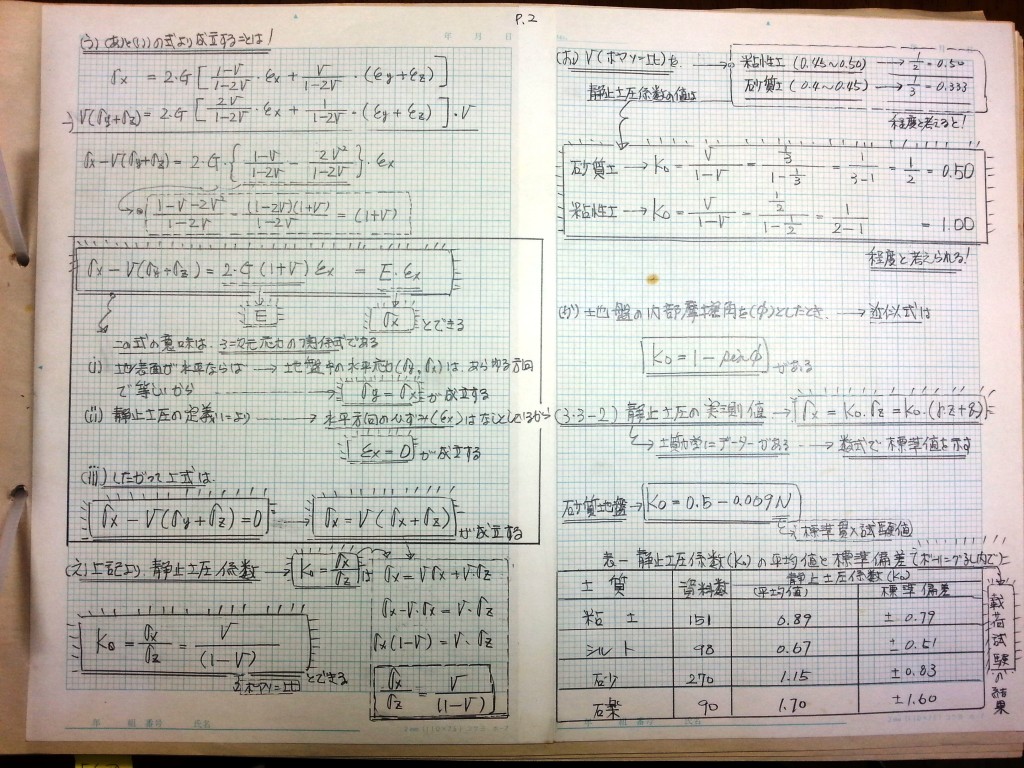 P.2
(う) (あ)と(い)の式より成立することは!
σx = 2·G [ (1-ν)/(1-2ν) · εx + ν/(1-2ν) · (εy+εz) ]
-) ν(σy+σz) = 2·G [ 2ν/(1-2ν) · εx + 1/(1-2ν) · (εy+εz) ] · ν
σx-ν(σy+σz) = 2·G · { (1-ν)/(1-2ν) - 2ν²/(1-2ν) } · εx
(1-ν-2ν²)/(1-2ν) = (1-2ν)(1+ν)/(1-2ν) = (1+ν)
σx - ν(σy+σz) = 2·G (1+ν) εx = E·εx
E
σx とできる
この式の意味は、3次元応力の関係式である
(i) 地表面が水平ならば → 地盤中の水平応力(σy, σx)は、あらゆる方向
で等しいから σy = σx が成立する
(ii) 静止土圧の定義により → 水平方向のひずみ(εx)はなしとしているから
εx = 0 が成立する
(iii) したがって上式は、
σx - ν(σy+σz) = 0 → σx = ν(σx+σz) が成立する
(え) 上記より 静止土圧係数 → K₀ = σx/σz は
σx = νσx+νσz
σx-ν·σx = ν·σz
σx(1-ν) = ν·σz
σx/σz = ν/(1-ν)
K₀ = σx/σz = ν/(1-ν) とできる
ポアソン比
(お) ν(ポアソン比)を → 粘性土 (0.45~0.50) → 1/2 = 0.50
砂質土 (0.4~0.45) → 1/3 = 0.333
程度と考えると!
静止土圧係数の値は
砂質土 → K₀ = ν/(1-ν) = (1/3)/(1-1/3) = 1/(3-1) = 1/2 = 0.50
粘性土 → K₀ = ν/(1-ν) = (1/2)/(1-1/2) = 1/(2-1) = 1.00
程度と考えられる!
(か) 土地盤の内部摩擦角を(φ)としたとき、 → 近似式は
K₀ = 1 - sinφ がある
(3·3-2) 静止土圧の実測値 → σx = K₀·σz = K₀·(γ·z+q)
→ 土質別にデーターがある → 数式で標準値を示す
砂質地盤 → K₀ = 0.5 - 0.009N
標準貫入試験値
表- 静止土圧係数(K₀)の平均値と標準偏差
土 質 資料数 静止土圧係数(K₀)
(平均値) 標準偏差
粘 土 151 0.89 ± 0.79
シルト 98 0.67 ± 0.51
砂 270 1.15 ± 0.83
石礫 90 1.70 ± 1.60
載荷試験の結果
年 組 番号 氏名